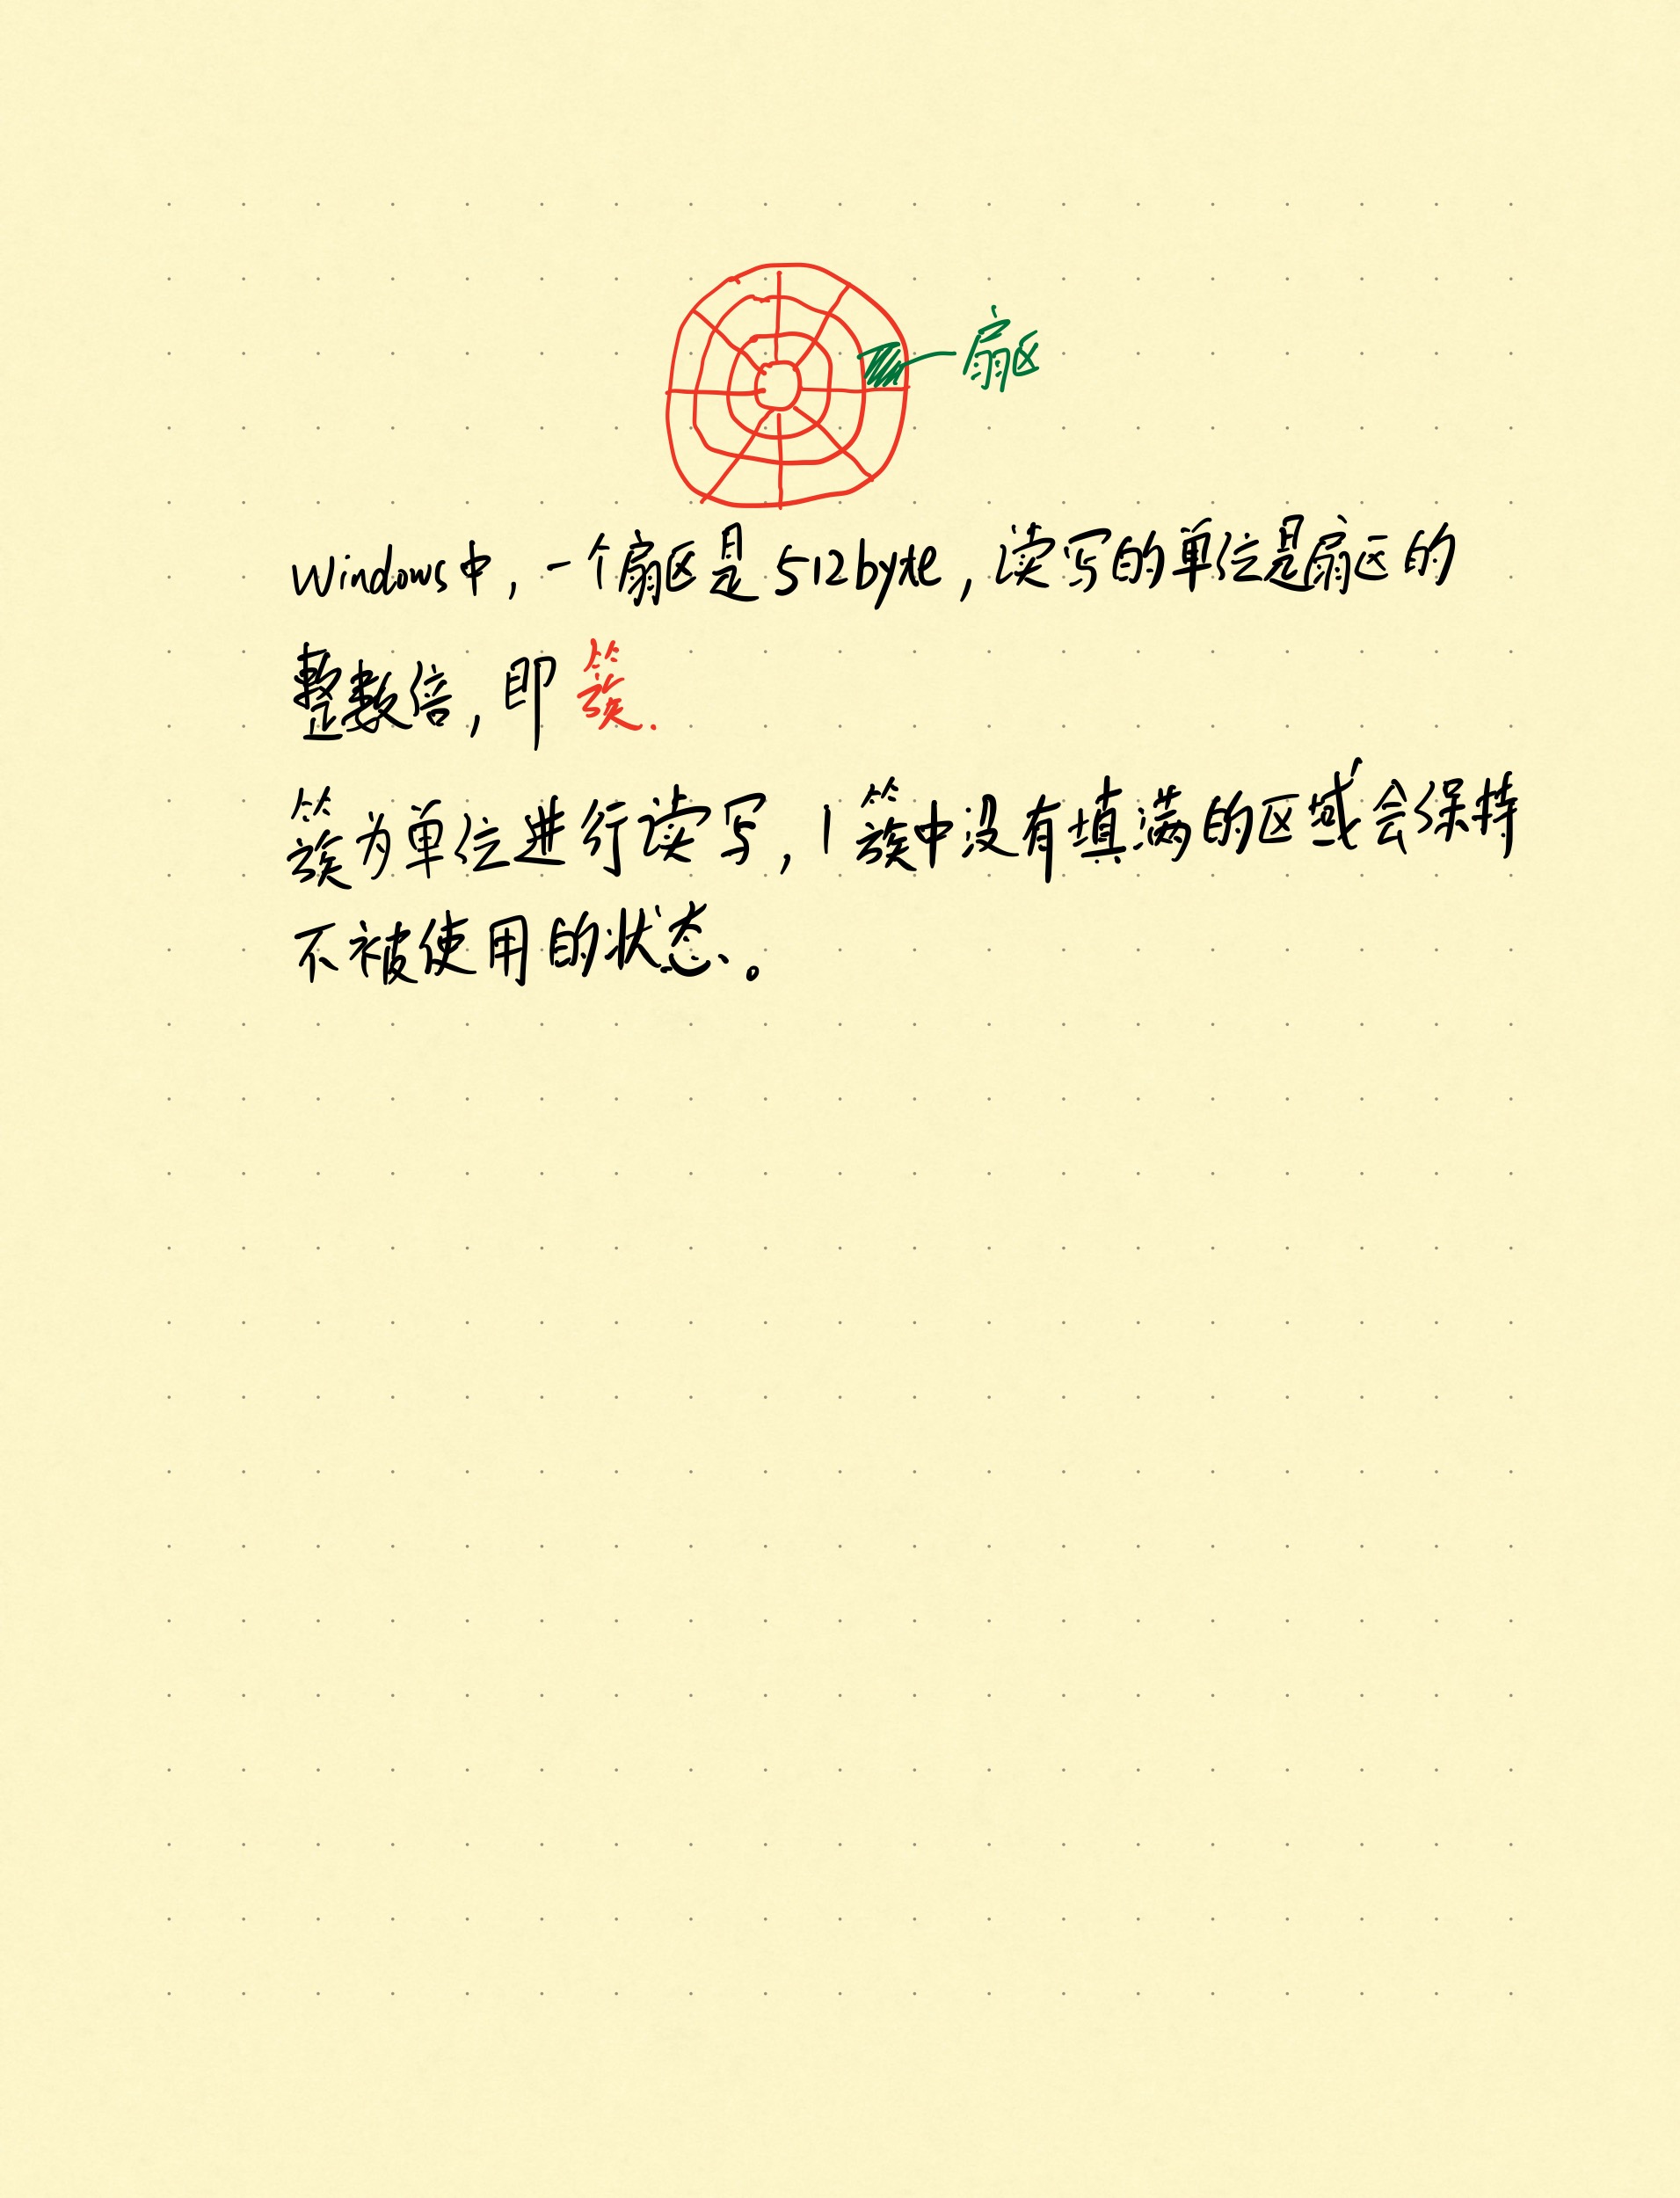 扇区
Windows中,一个扇区是512byte,读写的单位是扇区的
整数倍,即簇.
簇为单位进行读写,1簇中没有填满的区域会保持
不被使用的状态、。